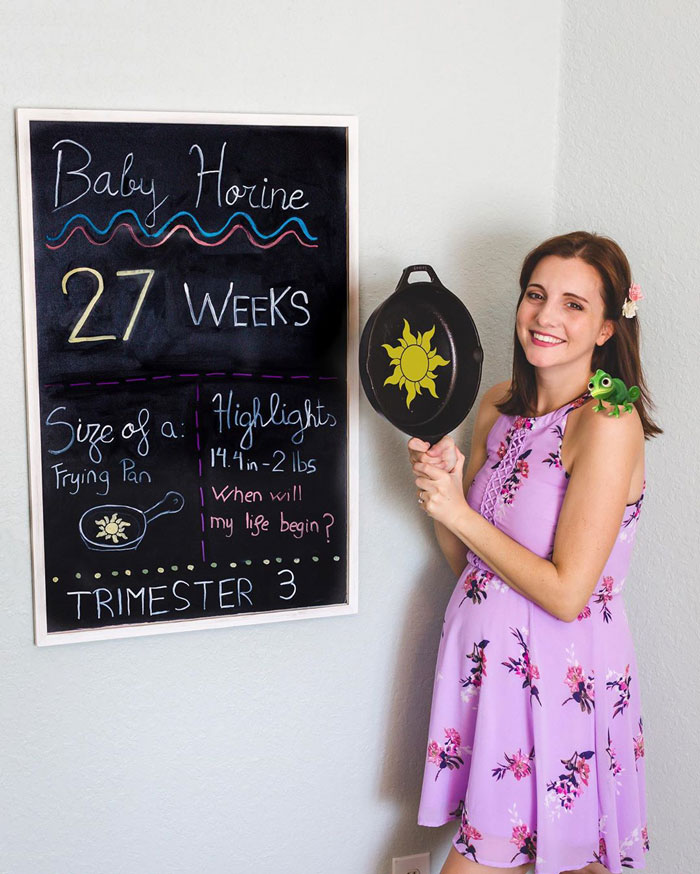 Baby Horine
27 WEEKS
Size of a:
Frying Pan
Highlights
14.4in-2 lbs
When will
my life begin?
TRIMESTER 3